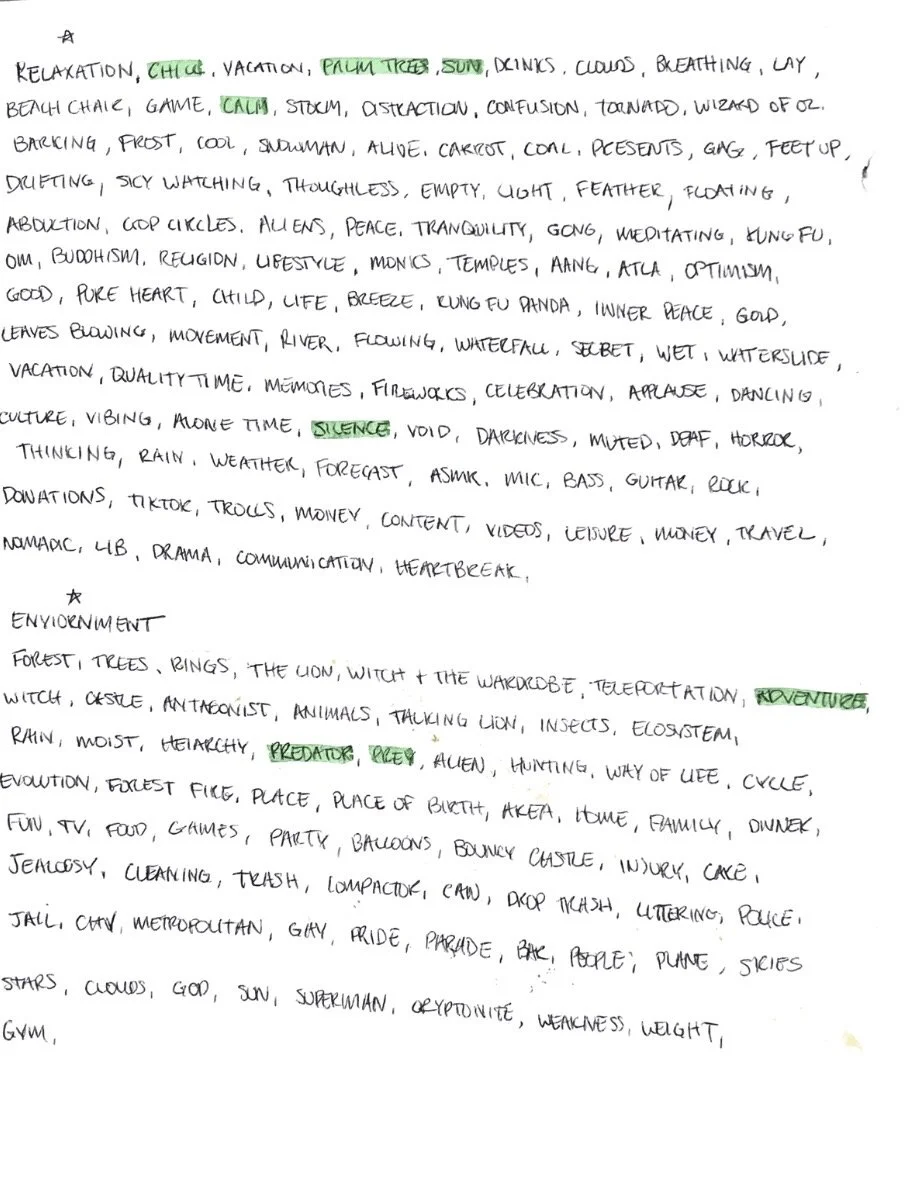 RELAXATION, CHILL, VACATION, PALM TREE, SUN, DRINKS, CLOUDS, BREATHING, LAY,
BEACH CHAIR, GAME, CALM, STORM, DISTRACTION, CONFUSION, TORNADO, WIZARD OF OZ.
BARKING, FROST, COOL, SNOWMAN, ALIVE. CARROT, COAL, PRESENTS, GAG, FEET UP,
DRIFTING, SKY WATCHING, THOUGHLESS, EMPTY, LIGHT, FEATHER, FLOATING,
ABDUCTION, CROP CIRCLES. ALIENS, PEACE. TRANQUILITY, GONG, MEDITATING, KUNG FU,
OM, BUDDHISM. RELIGION, LIFESTYLE, MONKS, TEMPLES, AANG, ATLA, OPTIMISM,
GOOD, PURE HEART, CHILD, LIFE, BREEZE, KUNG FU PANDA, INNER PEACE, GOLD,
LEAVES BLOWING, MOVEMENT, RIVER, FLOWING, WATERFALL, SECRET, WET, WATERSLIDE,
VACATION, QUALITY TIME, MEMORIES, FIREWORKS, CELEBRATION, APPLAUSE, DANCING,
CULTURE, VIBING, ALONE TIME, SILENCE, VOID, DARKNESS, MUTED, DEAF, HORROR,
THINKING, RAIN, WEATHER, FORECAST, ASMR, MIC, BASS, GUITAR, ROCK,
DONATIONS, TIKTOK, TROLLS, MONEY, CONTENT, VIDEOS, LEISURE, MONEY, TRAVEL,
NOMADIC, LIB, DRAMA, COMMUNICATION, HEARTBREAK,
ENVIORNMENT
FOREST, TREES, RINGS, THE LION, WITCH + THE WARDROBE, TELEPORTATION, ADVENTURE,
WITCH, CASTLE, ANTAGONIST, ANIMALS, TALKING LION, INSECTS, ECOSYSTEM,
RAIN, MOIST, HEIARCHY, PREDATOR, PREY, ALIEN, HUNTING, WAY OF LIFE, CYCLE,
EVOLUTION, FOREST FIRE, PLACE, PLACE OF BIRTH, AREA, HOME, FAMILY, DINNER,
FUN, TV, FOOD, GAMES, PARTY, BALLOONS, BOUNCY CASTLE, INJURY, CAKE,
JEALOUSY, CLEANING, TRASH, COMPACTOR, CAN, DROP TRASH, LITTERING, POLICE,
JAIL, CITY, METROPOLITAN, GAY, PRIDE, PARADE, BAR, PEOPLE, PLANE, SKIES
STARS, CLOUDS, GOD, SUN, SUPERMAN, CRYPTONITE, WEAKNESS, WEIGHT,
GYM,